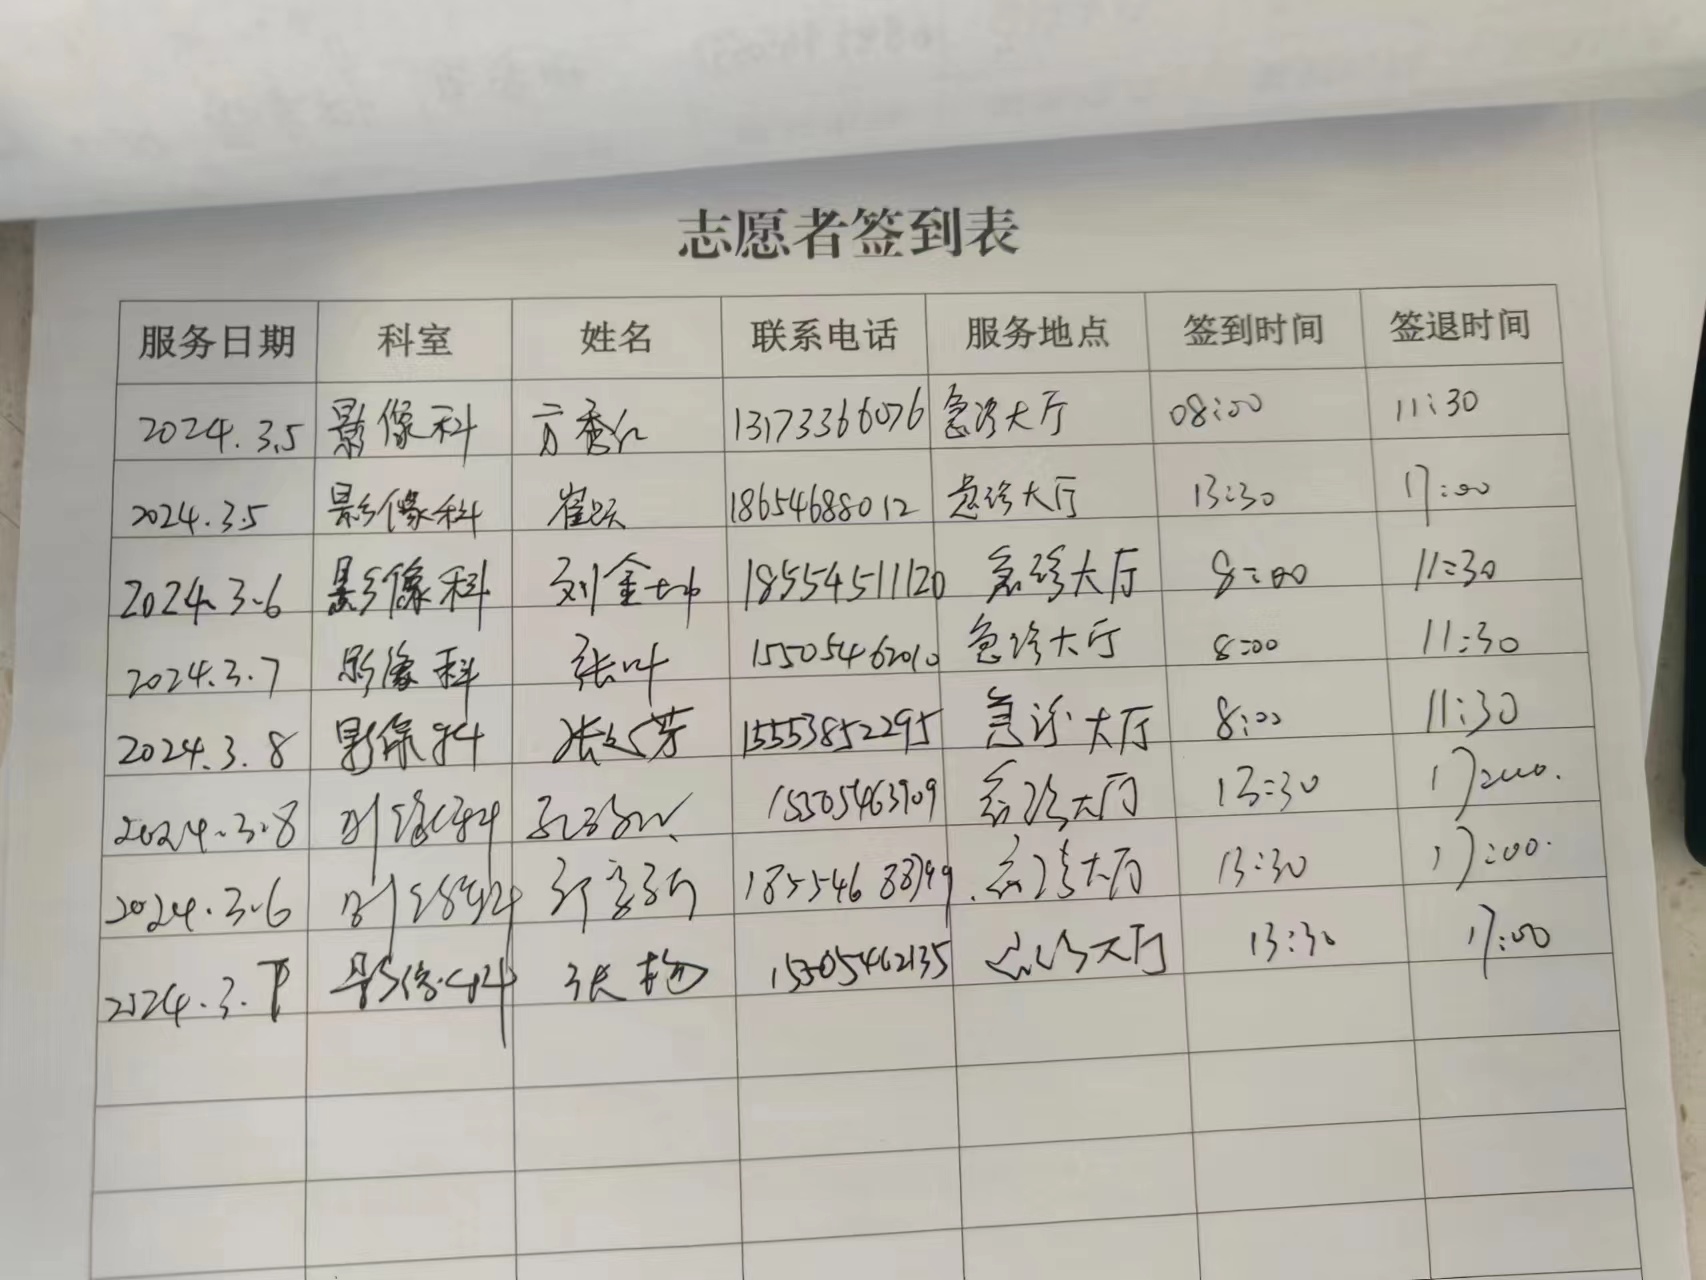 志愿者签到表
服务日期 科室 姓名 联系电话 服务地点 签到时间 签退时间
2024.3.5 影像科 方秀仁 13173366076 急诊大厅 08:00 11:30
2024.3.5 影像科 崔跃 18654688012 急诊大厅 13:30 17:00
2024.3.6 影像科 刘金坤 18554511120 急诊大厅 8:00 11:30
2024.3.7 影像科 张叶 15505462010 急诊大厅 8:00 11:30
2024.3.8 影像科 张文芳 15553852295 急诊大厅 8:00 11:30
2024.3.8 影像科 15505463909 急诊大厅 13:30 17:00.
2024.3.6 影像科 18554688799 急诊大厅 13:30 17:00.
2024.3. 影像科 张 15505462135 急诊大厅 13:30 17:00